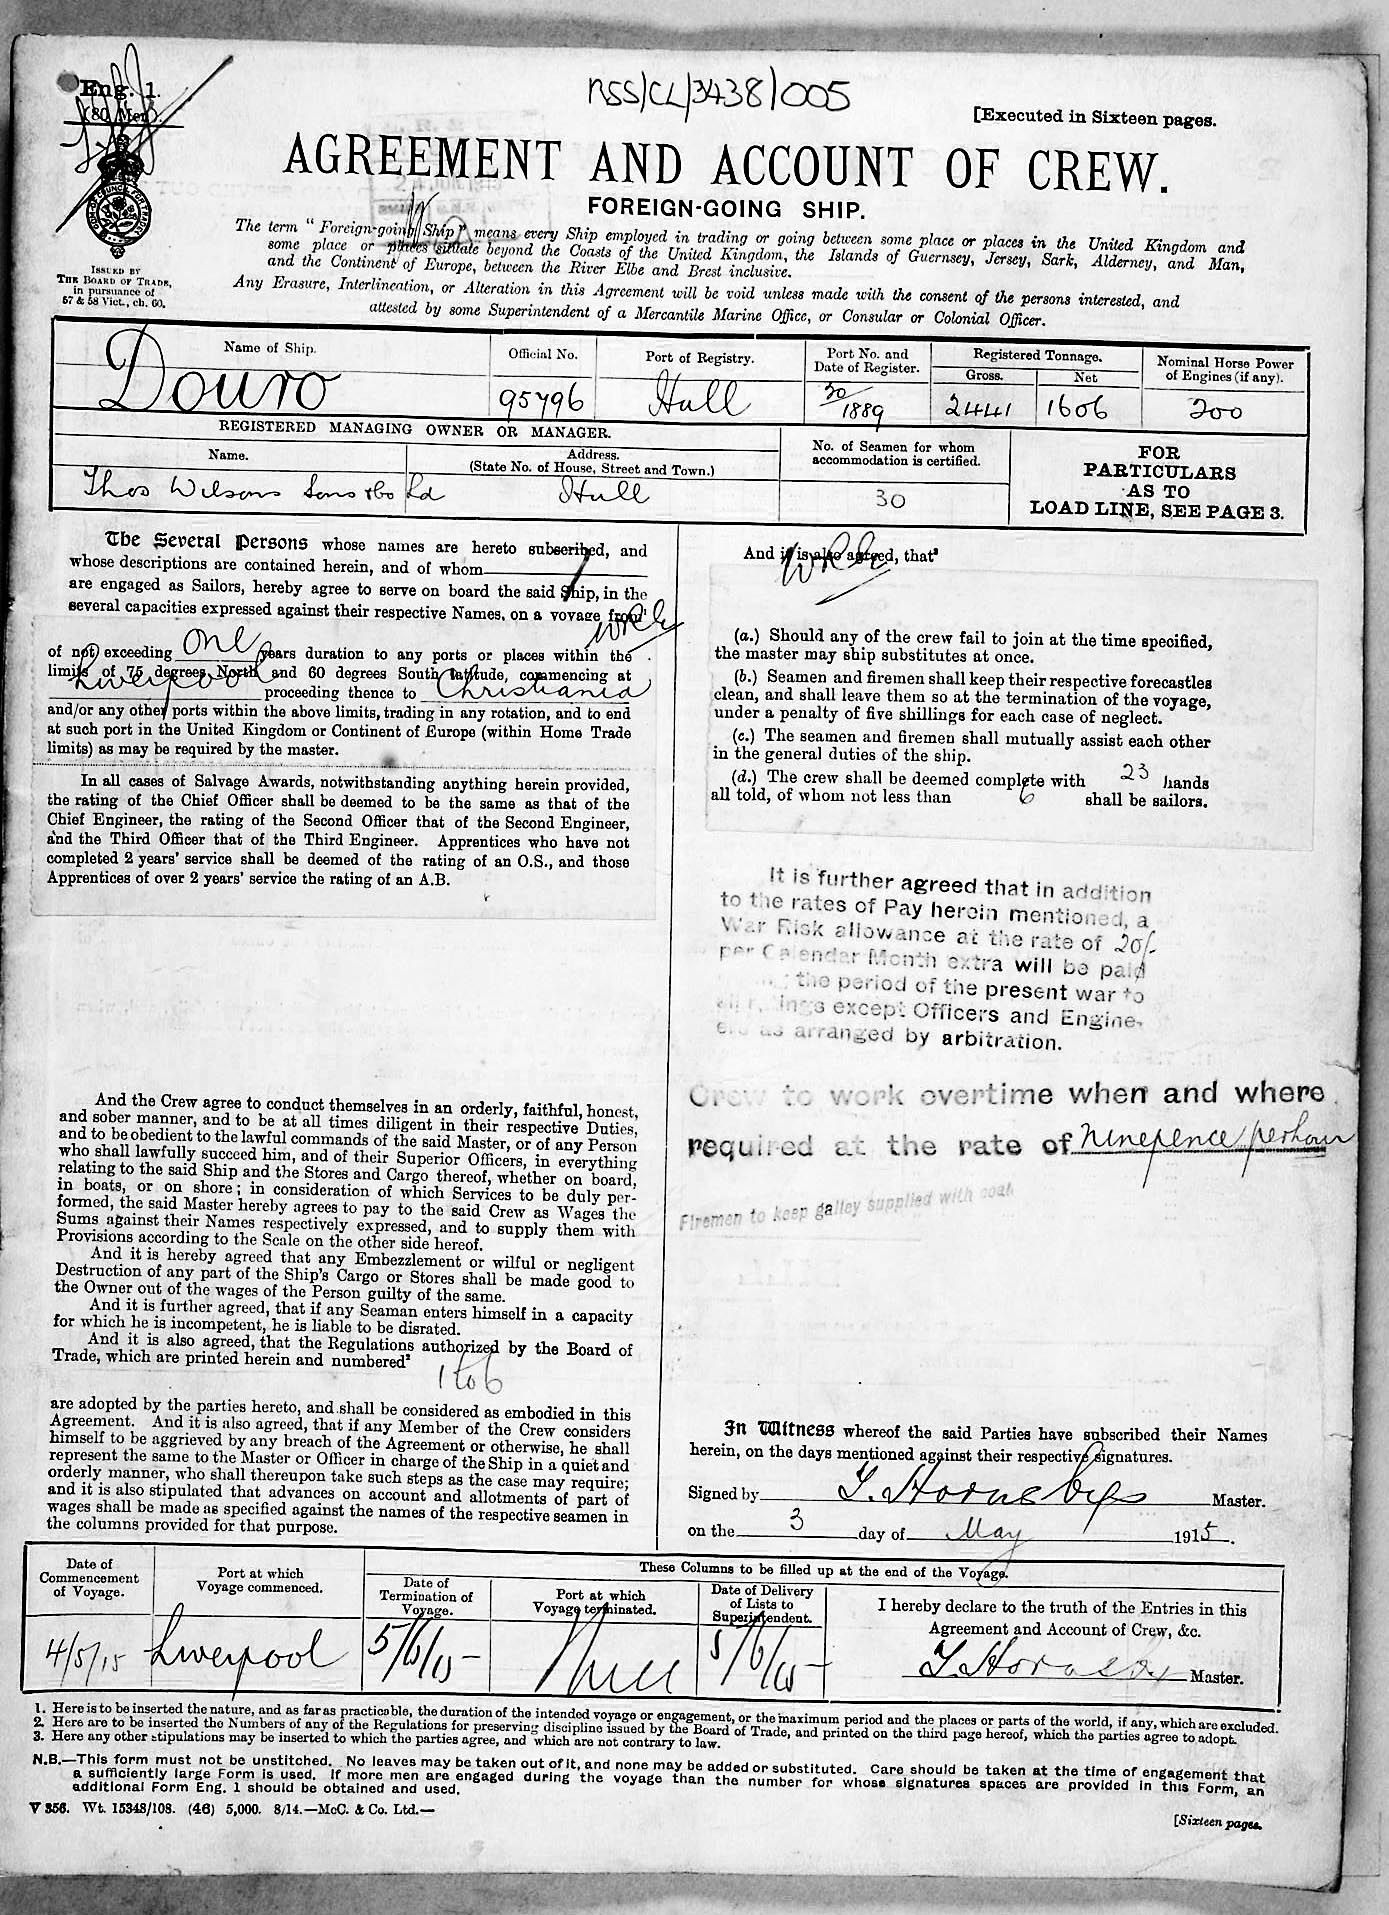 Eng. 1.
(80 Men).
RSS/CL/3438/005
[Executed in Sixteen pages.
AGREEMENT AND ACCOUNT OF CREW.
FOREIGN-GOING SHIP.
ISSUED BY
THE BOARD OF TRADE,
in pursuance of
57 & 58 Vict., ch. 60.
The term "Foreign-going Ship" means every Ship employed in trading or going between some place or places in the United Kingdom and
some place or places situate beyond the Coasts of the United Kingdom, the Islands of Guernsey, Jersey, Sark, Alderney, and Man,
and the Continent of Europe, between the River Elbe and Brest inclusive.
Any Erasure, Interlineation, or Alteration in this Agreement will be void unless made with the consent of the persons interested, and
attested by some Superintendent of a Mercantile Marine Office, or Consular or Colonial Officer.
Name of Ship. Official No. Port of Registry. Port No. and Date of Register. Registered Tonnage. Gross. Net Nominal Horse Power of Engines (if any).
Douro 95796 Hull 30/1889 2441 1606 200
REGISTERED MANAGING OWNER OR MANAGER.
Name. Address. (State No. of House, Street and Town.) No. of Seamen for whom accommodation is certified.
Thos Wilsons Sons & Co Ld Hull 30
FOR
PARTICULARS
AS TO
LOAD LINE, SEE PAGE 3.
The Several Persons whose names are hereto subscribed, and
whose descriptions are contained herein, and of whom
are engaged as Sailors, hereby agree to serve on board the said Ship, in the
several capacities expressed against their respective Names, on a voyage from¹
of not exceeding One years duration to any ports or places within the
limits of 75 degrees North and 60 degrees South latitude, commencing at
Liverpool proceeding thence to Christiania
and/or any other ports within the above limits, trading in any rotation, and to end
at such port in the United Kingdom or Continent of Europe (within Home Trade
limits) as may be required by the master.
In all cases of Salvage Awards, notwithstanding anything herein provided,
the rating of the Chief Officer shall be deemed to be the same as that of the
Chief Engineer, the rating of the Second Officer that of the Second Engineer,
and the Third Officer that of the Third Engineer. Apprentices who have not
completed 2 years' service shall be deemed of the rating of an O.S., and those
Apprentices of over 2 years' service the rating of an A.B.
And the Crew agree to conduct themselves in an orderly, faithful, honest,
and sober manner, and to be at all times diligent in their respective Duties,
and to be obedient to the lawful commands of the said Master, or of any Person
who shall lawfully succeed him, and of their Superior Officers, in everything
relating to the said Ship and the Stores and Cargo thereof, whether on board,
in boats, or on shore; in consideration of which Services to be duly per-
formed, the said Master hereby agrees to pay to the said Crew as Wages the
Sums against their Names respectively expressed, and to supply them with
Provisions according to the Scale on the other side hereof.
And it is hereby agreed that any Embezzlement or wilful or negligent
Destruction of any part of the Ship's Cargo or Stores shall be made good to
the Owner out of the wages of the Person guilty of the same.
And it is further agreed, that if any Seaman enters himself in a capacity
for which he is incompetent, he is liable to be disrated.
And it is also agreed, that the Regulations authorized by the Board of
Trade, which are printed herein and numbered²
1 to 6
are adopted by the parties hereto, and shall be considered as embodied in this
Agreement. And it is also agreed, that if any Member of the Crew considers
himself to be aggrieved by any breach of the Agreement or otherwise, he shall
represent the same to the Master or Officer in charge of the Ship in a quiet and
orderly manner, who shall thereupon take such steps as the case may require;
and it is also stipulated that advances on account and allotments of part of
wages shall be made as specified against the names of the respective seamen in
the columns provided for that purpose.
And it is also agreed, that³
(a.) Should any of the crew fail to join at the time specified,
the master may ship substitutes at once.
(b.) Seamen and firemen shall keep their respective forecastles
clean, and shall leave them so at the termination of the voyage,
under a penalty of five shillings for each case of neglect.
(c.) The seamen and firemen shall mutually assist each other
in the general duties of the ship.
(d.) The crew shall be deemed complete with 23 hands
all told, of whom not less than 6 shall be sailors.
It is further agreed that in addition
to the rates of Pay herein mentioned, a
War Risk allowance at the rate of 20/-
per Calendar Month extra will be paid
the period of the present war to
all ratings except Officers and Engine-
ers as arranged by arbitration.
Crew to work overtime when and where
required at the rate of ninepence per hour
Firemen to keep galley supplied with coal
In Witness whereof the said Parties have subscribed their Names
herein, on the days mentioned against their respective signatures.
Signed by Hornsby Master.
on the 3 day of May 1915.
Date of Commencement of Voyage. Port at which Voyage commenced. These Columns to be filled up at the end of the Voyage.
Date of Termination of Voyage. Port at which Voyage terminated. Date of Delivery of Lists to Superintendent. I hereby declare to the truth of the Entries in this
Agreement and Account of Crew, &c.
4/5/15 Liverpool 5/6/15 Hull 5/6/15 Hornsby Master.
1. Here is to be inserted the nature, and as far as practicable, the duration of the intended voyage or engagement, or the maximum period and the places or parts of the world, if any, which are excluded.
2. Here are to be inserted the Numbers of any of the Regulations for preserving discipline issued by the Board of Trade, and printed on the third page hereof, which the parties agree to adopt.
3. Here any other stipulations may be inserted to which the parties agree, and which are not contrary to law.
N.B.—This form must not be unstitched. No leaves may be taken out of it, and none may be added or substituted. Care should be taken at the time of engagement that
a sufficiently large Form is used. If more men are engaged during the voyage than the number for whose signatures spaces are provided in this Form, an
additional Form Eng. 1 should be obtained and used.
V 356. Wt. 15348/108. (46) 5,000. 8/14.—McC. & Co. Ltd.—
[Sixteen pages.